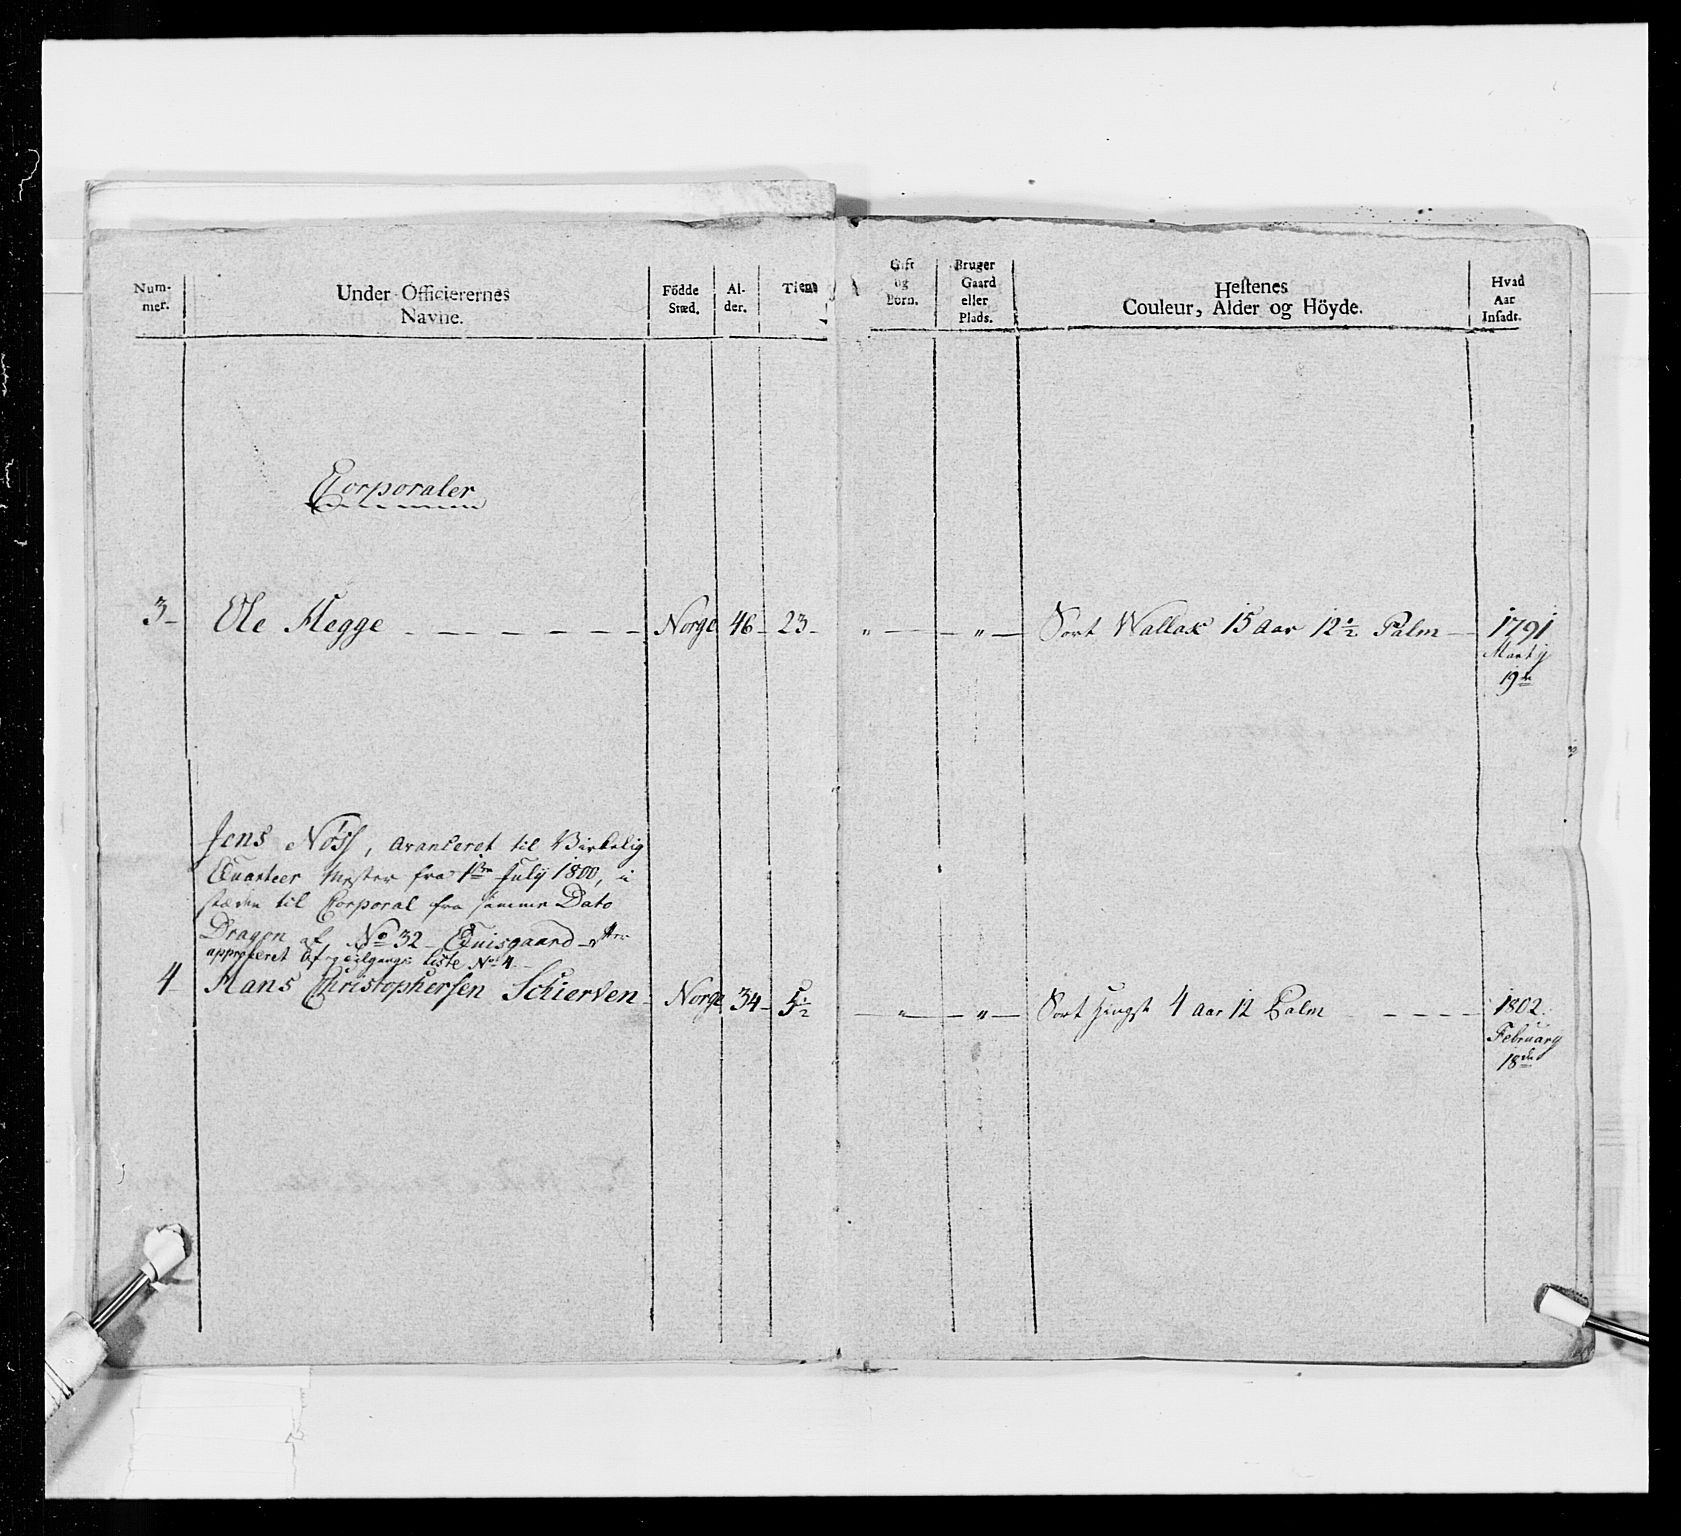 Num-
mer.
Under-Officierernes
Navne.
Födde
Stæd.
Al-
der.
Tient
Gift
og
Börn.
Bruger
Gaard
eller
Plads.
Hestenes
Couleur, Alder og Höyde.
Hvad
Aar
Insadt.
Corporaler
3 Ole Hegge Norge 46 23 " " Sort Wallak 15 Aar 12½ Palm 1791
Martij
19de
Jens Nöss, avanceret til Virkelig
Quarteer Mester fra 1ste July 1800, i
stæden til Corporal fra samme Dato
Dragon af No 32 Quisgaard
approberet Af- og tilgangs Liste No 4
4 Hans Christophersen Schierven Norge 34 5½ " " Sort Hingst 4 Aar 12 Palm 1802
February
18de